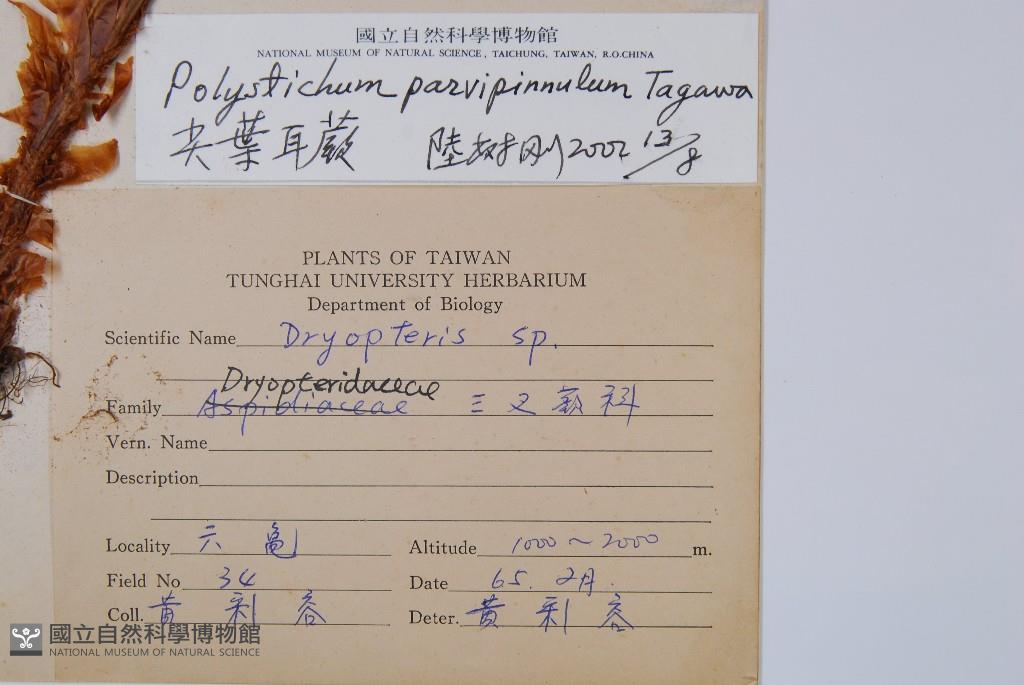 國立自然科學博物館
NATIONAL MUSEUM OF NATURAL SCIENCE, TAICHUNG, TAIWAN, R.O.CHINA
Polystichum parvipinnulum Tagawa
尖葉耳蕨 陸樹刚 2002 13/8
PLANTS OF TAIWAN
TUNGHAI UNIVERSITY HERBARIUM
Department of Biology
Scientific Name Dryopteris sp.
Dryopteridaceae
Family Aspidiaceae 三叉蕨科
Vern. Name
Description
Locality 六龜 Altitude 1000~2000 m.
Field No 34 Date 65. 2月.
Coll. 黄利容 Deter. 黄利容
國立自然科學博物館
NATIONAL MUSEUM OF NATURAL SCIENCE